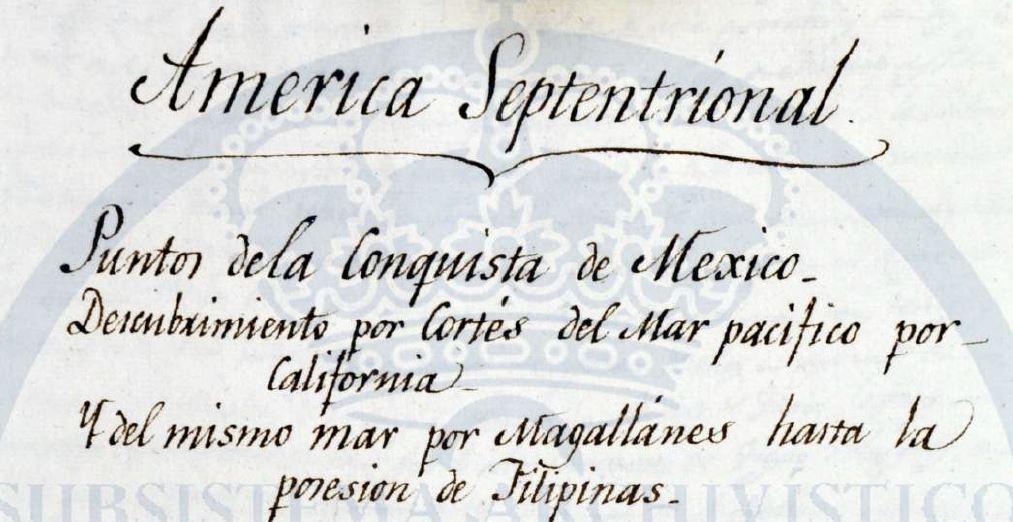 America Septentrional.
Puntos dela Conquista de Mexico_
Descubrimiento por Cortés del Mar pacifico por_
California_
Y del mismo mar por Magallánes hasta la
posesion de Filipinas_
SUBSISTEMA ARCHIVÍSTICO